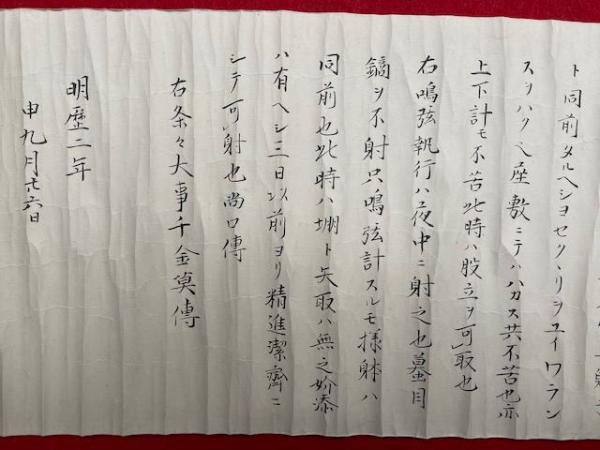 ト同前タルヘシヨセクヽリヲユイワラン
スヲハク座敷ニテハハカス共不苦也亦
上下計モ不苦此時ハ股立ヲ可取也
右鳴弦執行ハ夜中ニ射之也蟇目
鏑ヲ不射只鳴弦計スルモ様躰ハ
同前也此時ハ堋ト矢取ハ無之介添
ハ有ヘシ三日以前ヨリ精進潔齋ニ
シテ可射也尚口傳
右条々大事千金莫傳
明歴二年
申九月廿六日